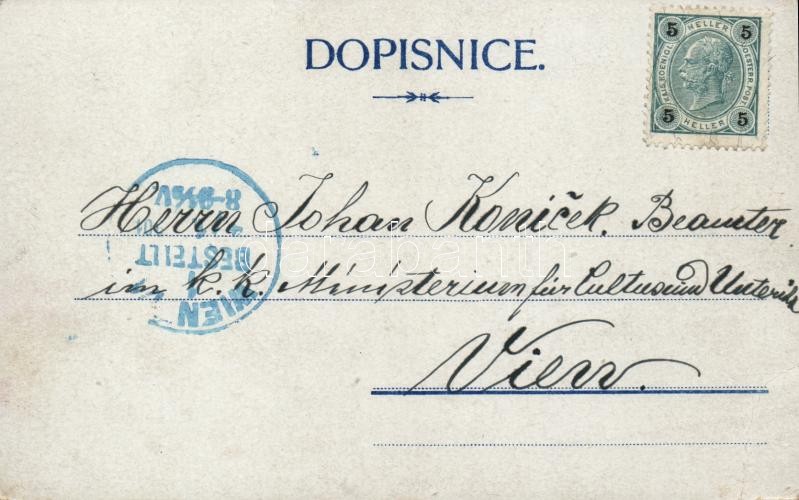 DOPISNICE.
5 HELLER 5
KAIS. KOENIGL. OESTERR. POST.
5 HELLER 5
Herrn Johan Koníček, Beamter
im k. k. Ministerium für Cultus und Unterricht
Wien.
WIEN
BESTELLT
8-9½V
darabanth